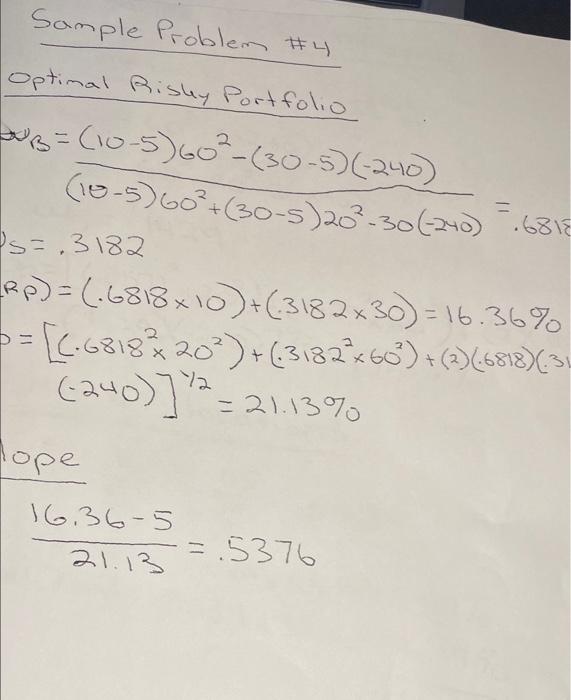 Sample Problem #4
Optimal Risky Portfolio
WB = (10-5)60² - (30-5)(-240)
(10-5)60² + (30-5)20² - 30(-240) = .6818
s = .3182
Rp) = (.6818 x 10) + (.3182 x 30) = 16.36%
= [(.6818² x 20²) + (.3182² x 60²) + (2)(.6818)(.31
(-240)]^1/2 = 21.13%
lope
16.36 - 5
21.13 = .5376